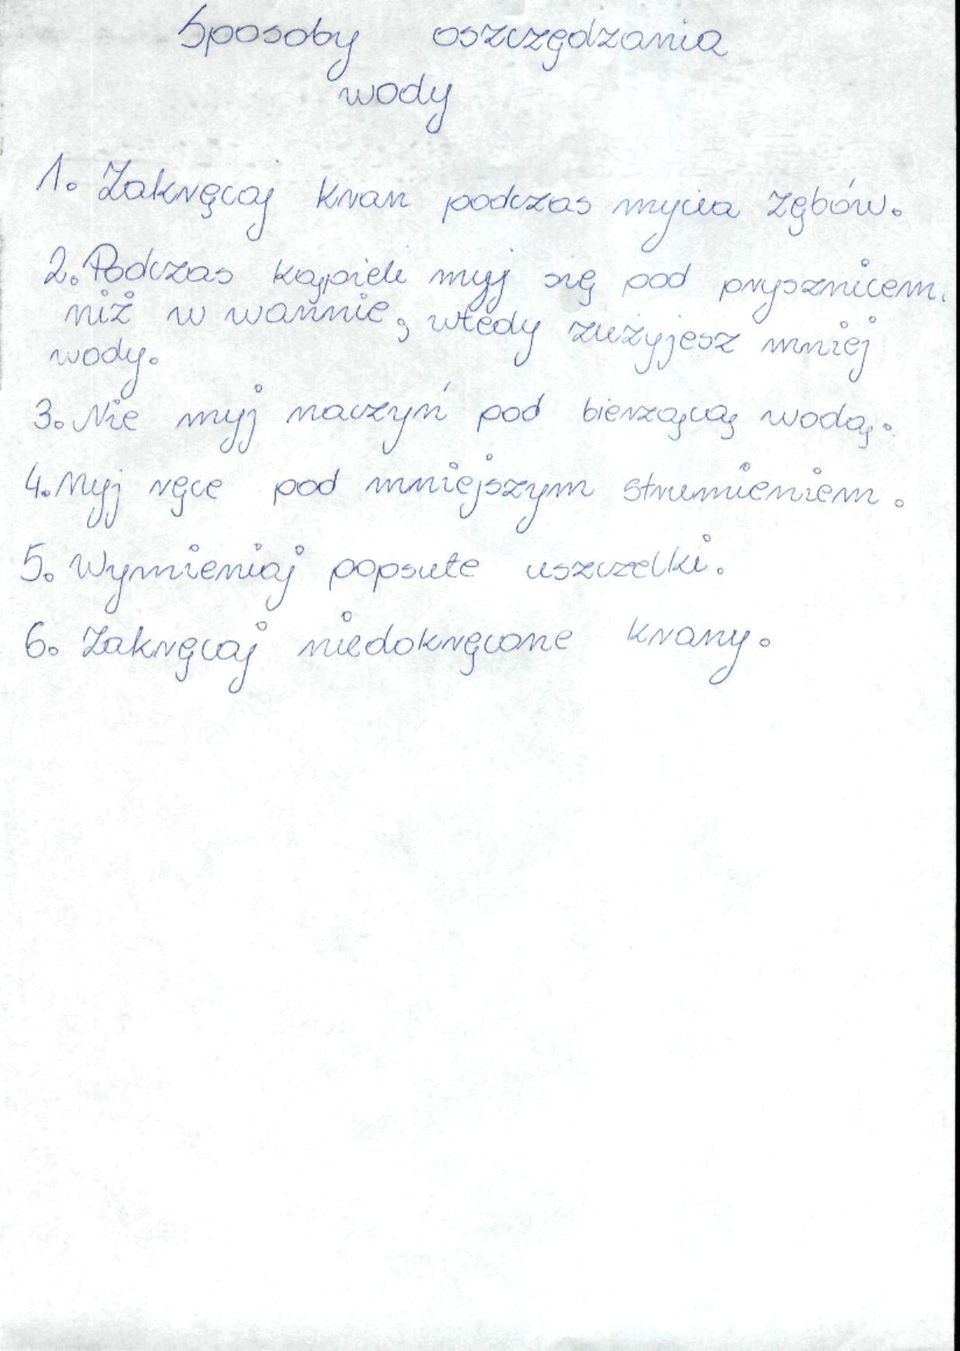 Sposoby oszczędzania
wody
1. Zakręcaj kran podczas mycia zębów.
2. Podczas kąpieli myj się pod prysznicem.
niż w wannie, wtedy zużyjesz mniej
wody.
3. Nie myj naczyń pod bierzącą wodą.
4. Myj ręce pod mniejszym strumieniem.
5. Wymieniaj popsute uszczelki.
6. Zakręcaj niedokręcone krany.